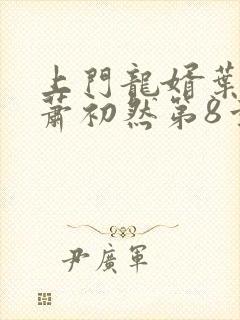 上門龍婿葉
蕭初然第8
尹廣軍